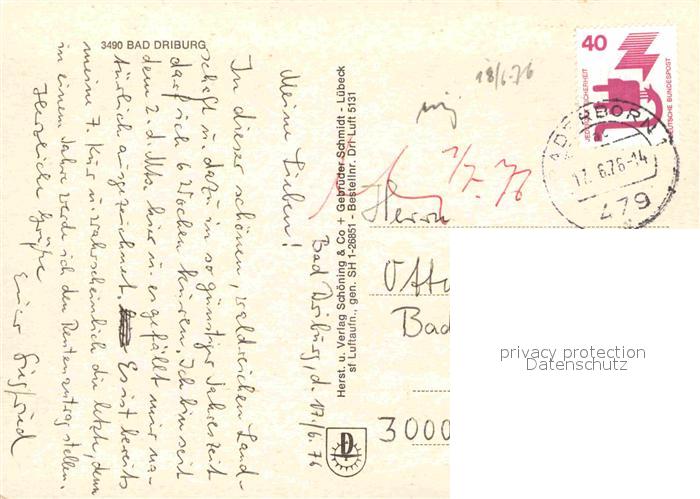 3490 BAD DRIBURG
Bad Driburg, d. 17./6. 76
Meine Lieben!
In dieser schönen, waldreichen Land-
schaft u. dazu in so günstiger Jahreszeit
darf ich 6 Wochen kuren. Ich bin seit
dem 2. d. Mts. hier u. es gefällt mir na-
türlich ausgezeichnet. Es ist bereits
meine 7. Kur u. wahrscheinlich die letzte, denn
in einem Jahr werde ich den Rentenantrag stellen.
Herzliche Grüße
Euer Siegfried
Herst. u. Verlag Schöning & Co + Gebrüder Schmidt - Lübeck
sf Luftaufn., gen. SH 1-26851 - Bestellnr. Dri Luft 5131
18/6.76
1/7. 76
40
JEDERZEIT SICHERHEIT
DEUTSCHE BUNDESPOST
PADERBORN
17.6.76-14
479
Herrn
Otto
Bad
3000
privacy protection
Datenschutz